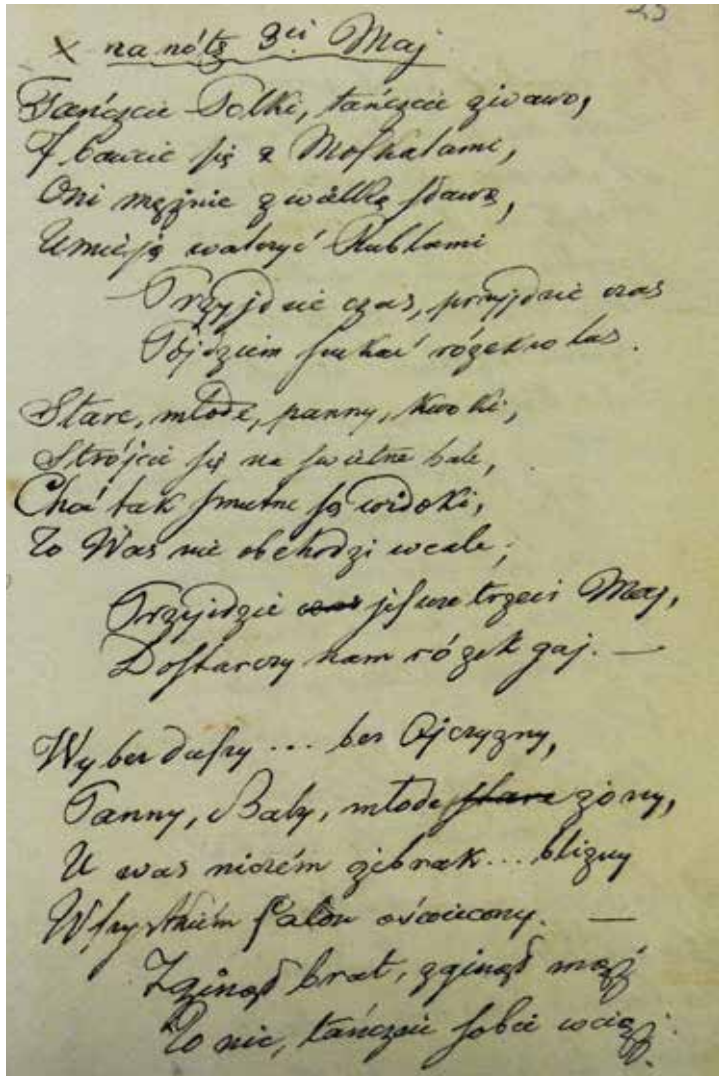 25
x na nótę 3ci Maj
Tańczcie Polki, tańczcie żwawo,
I bawcie się z Moskalami,
Oni mężnie z wielką sławą,
Umieją walczyć Rublami
Przyjdzie czas, przyjdzie czas
Pójdziem szukać rózek w las.
Stare, młode, panny, kwoki,
Strójcie się na świetne bale,
Choć tak smutne są widoki,
To Was nie obchodzi wcale;
Przyjdzie czas jeszcze trzeci Maj,
Dostarczy nam rózek gaj. —
Wy bez duszy ... bez Ojczyzny,
Panny, Baby, młode stare żony,
U was niczém żebrak ... blizny
Wszystkiém salon oświecony. —
Zginął brat, zginął mąż
To nic, tańczcie sobie wciąż.